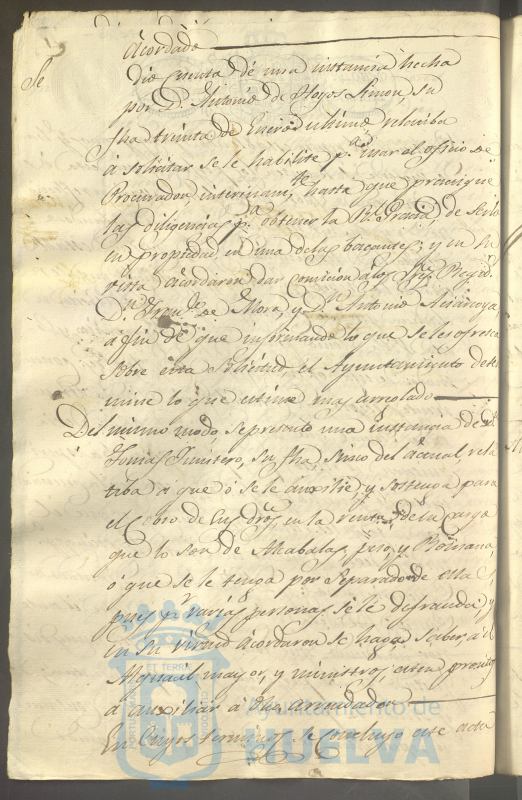 Acordado
Se dio cuenta de una instancia hecha
por Dn. Antonio de Hoyos Limon, su
fha treinta de Enero ultimo, relatiba
à solicitar se le habilite pa. usar el oficio de
Procurador interinamte. hasta que practique
las diligencias pa. obtener la Rl. Gracia de serlo
en propiedad en una de las bacantes, y en
vista acordaron dar comicion à los Sres. Regids.
Dn. Franco. de Mora, y Dn. Antonio
à fin de que informando lo que se les ofresca
sobre esta solicitud, el Ayuntamiento deter
mine lo que estime mas arreglado
Del mismo modo, se presento una instancia de
Tomas Quintero, su fha, sinco del actual, rela
tiba à que ò se le auxilie, y sostenga para
el cobro de sus dros. en la renta de su cargo
que lo son de Alcabalas, peso, y
ò que se le tenga por separado de ella
pues pr. varias personas se le defrauda, y
en su virtud acordaron se haga saber à el
Alguacil mayor, y ministros, esten promtos
à auxiliar à dho arrendador
En cuyos terminos se concluyo este acto
ET TERRA
Ayuntamiento de
HUELVA